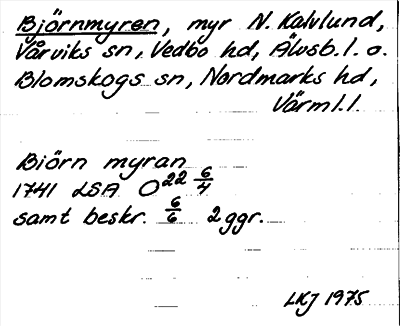 Björnmyren, myr N. Kalvlund,
Vårviks sn, Vedbo hd, Älvsb. l. o.
Blomskogs sn, Nordmarks hd,
Värml. l.
Biörn myran
1741 LSA O22 6/4
samt beskr. 6/6 2 ggr.
LKJ 1975